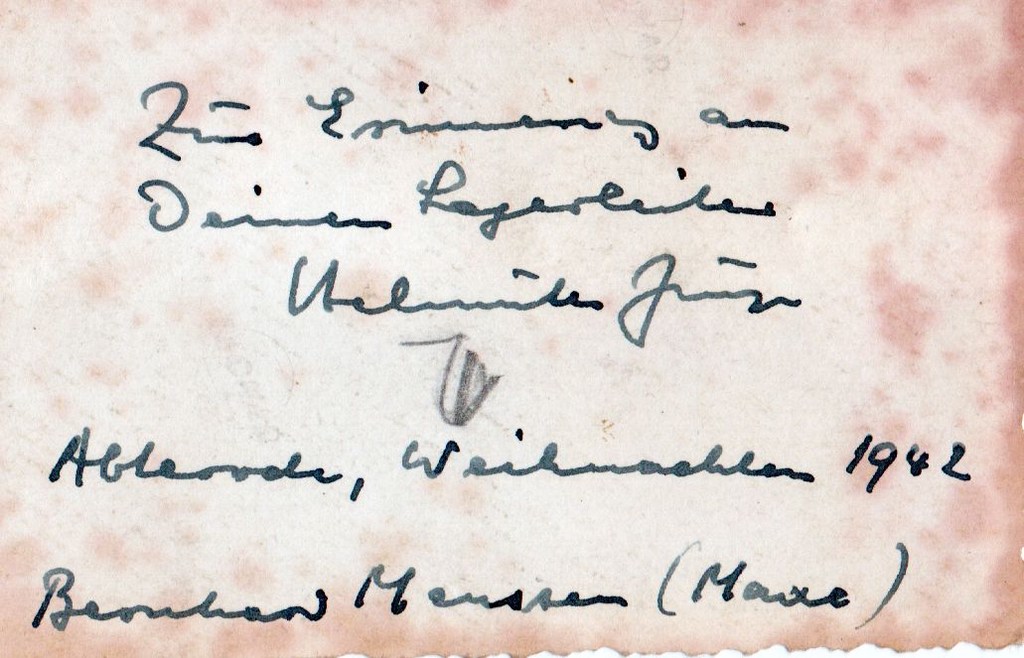 Zur Erinnerung an
Deinen Lagerleiter
Helmuth
Abterode, Weihnachten 1942
Bernhard Menssen (Maxe)